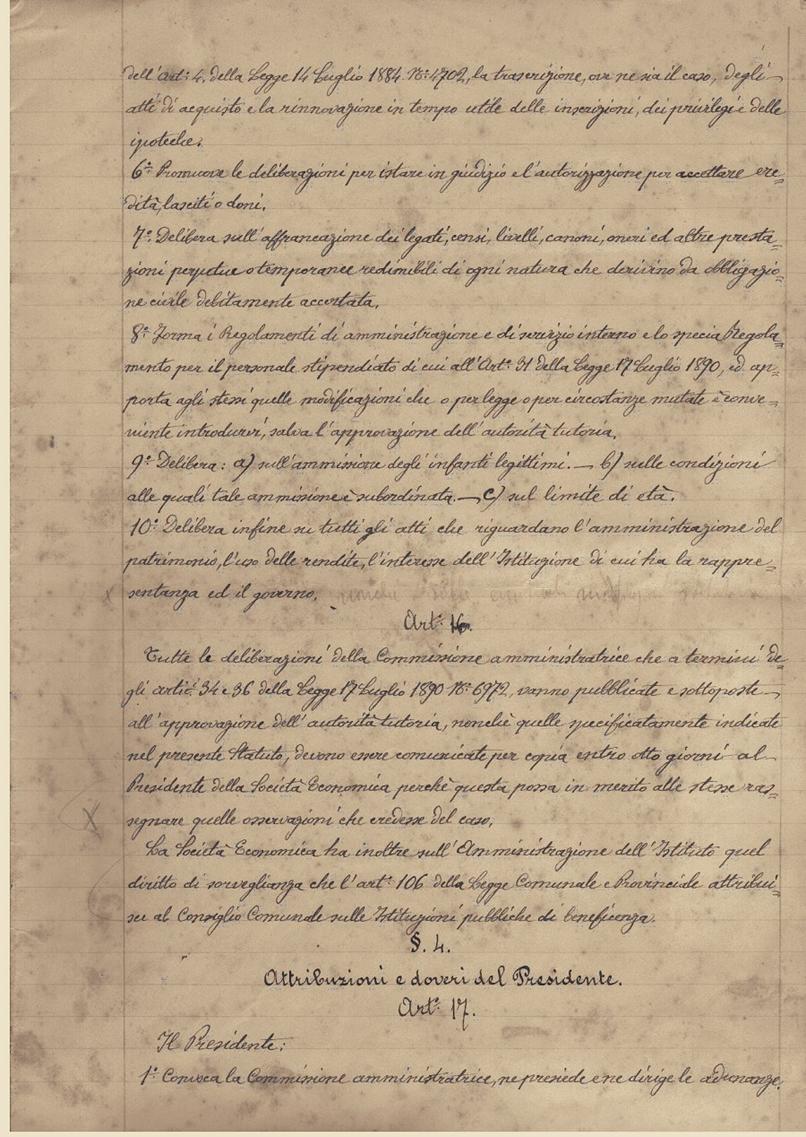 dell'Art.º 4. della Legge 14 Luglio 1884. Nº: 4702, la trascrizione, ove ne sia il caso, degli
atti di acquisto e la rinnovazione in tempo utile delle inscrizioni, dei privilegi e delle
ipoteche.
6º Promuove le deliberazioni per istare in giudizio e l'autorizzazione per accettare ere=
dità, lasciti o doni.
7º. Delibera sull'affrancazione dei legati, censi, livelli, canoni, oneri ed altre presta=
zioni perpetue o temporanee redimibili di ogni natura che derivino da obbligazio=
ne civile debitamente accertata.
8º Forma i Regolamenti di amministrazione e di servizio interno e lo special Regola=
mento per il personale stipendiato di cui all'Artº. 31 della Legge 17 Luglio 1890, ed ap=
porta agli stessi quelle modificazioni che o per legge o per circostanze mutate è conve=
niente introdurvi, salva l'approvazione dell'autorità tutoria.
9º Delibera: a) sull'ammissione degli infanti legittimi. — b) sulle condizioni
alle quali tale ammissione è subordinata. — c) sul limite di età.
10º Delibera infine su tutti gli atti che riguardano l'amministrazione del
patrimonio, l'uso delle rendite, l'interesse dell'Istituzione di cui ha la rappre=
sentanza ed il governo.
Artº. 16.
Tutte le deliberazioni della Commissione amministratrice che a termini de=
gli articº. 34 e 36 della Legge 17 Luglio 1890 Nº. 6972, vanno pubblicate e sottoposte
all'approvazione dell'autorità tutoria, nonchè quelle specificatamente indicate
nel presente Statuto, devono essere comunicate per copia entro otto giorni al
Presidente della Società Economica perchè questa possa in merito alle stesse ras=
segnare quelle osservazioni che credesse del caso.
La Società Economica ha inoltre sull'Amministrazione dell'Istituto quel
diritto di sorveglianza che l'artº. 106 della Legge Comunale e Provinciale attribui=
sce al Consiglio Comunale sulle Istituzioni pubbliche di beneficenza.
§. 4.
Attribuzioni e doveri del Presidente.
Artº. 17.
Il Presidente:
1º Convoca la Commissione amministratrice, ne presiede e ne dirige le adunanze.